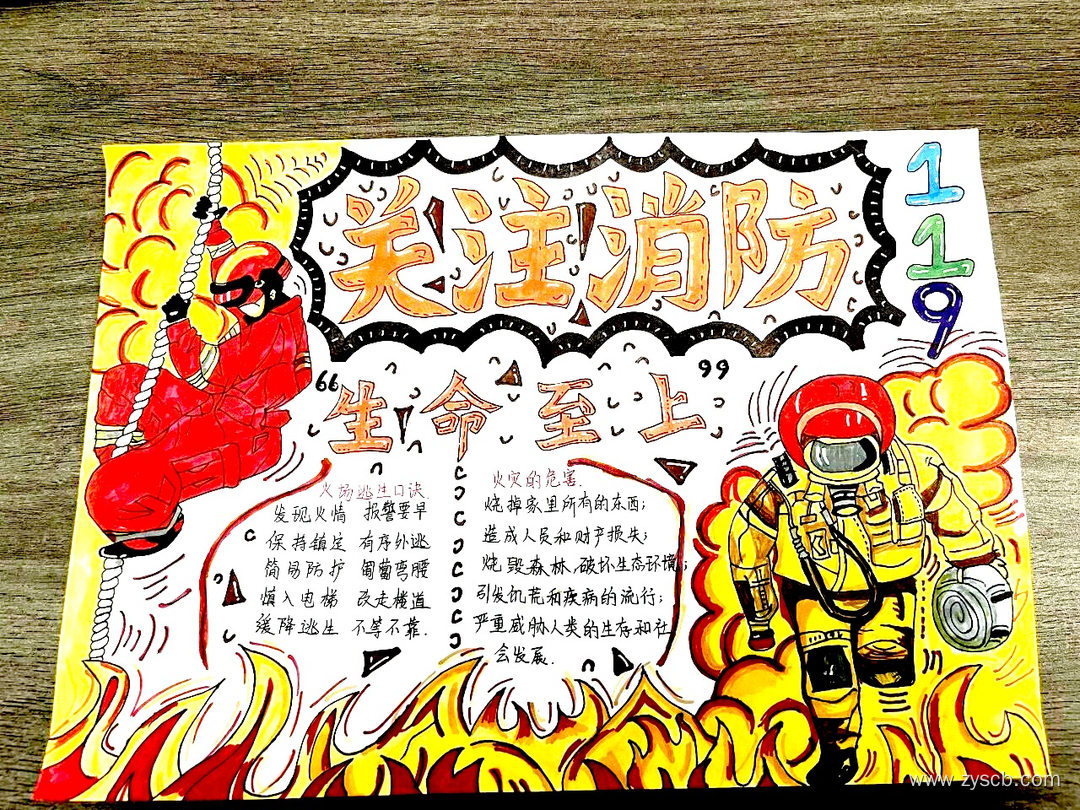 关注消防
119
“生命至上”
火场逃生口诀.
发现火情 报警要早
保持镇定 有序外逃
简易防护 匍匐弯腰
慎入电梯 改走楼道
缓降逃生 不等不靠.
火灾的危害.
烧掉家里所有的东西;
造成人员和财产损失;
烧毁森林,破坏生态环境;
引发饥荒和疾病的流行;
严重威胁人类的生存和社
会发展.
www.zyscb.com